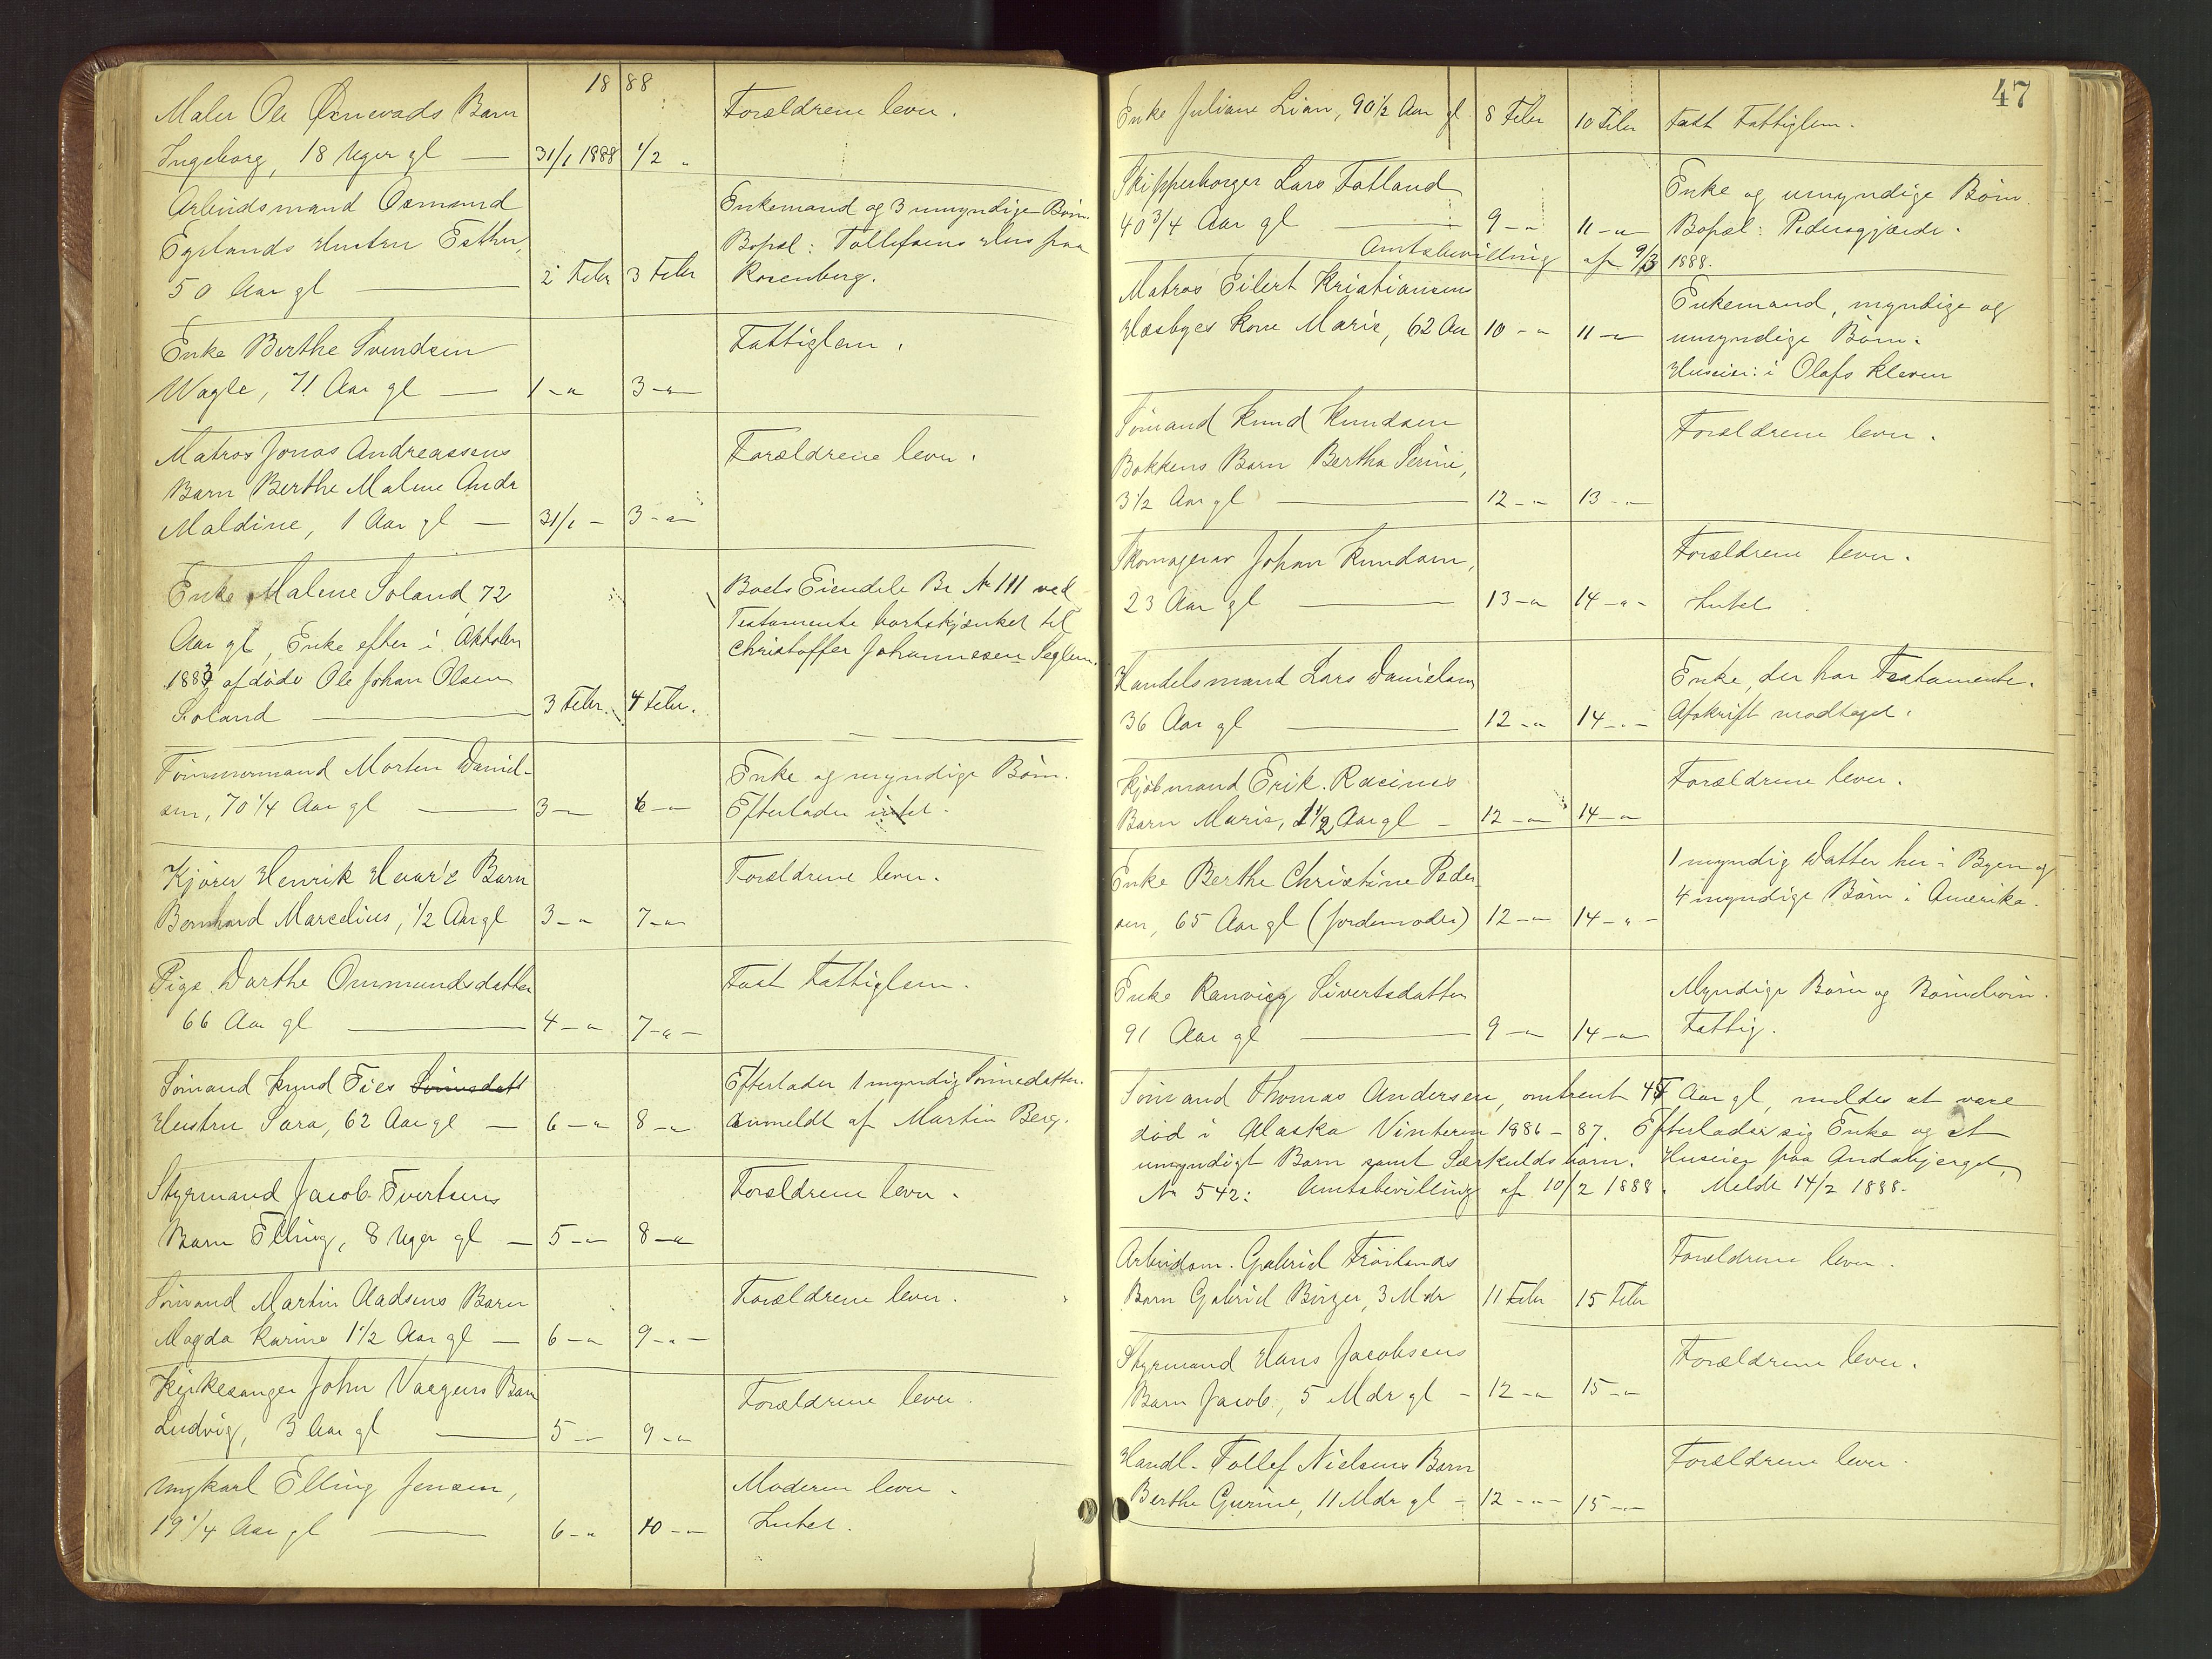 1888
Maler Ole Øxnevads Barn
Forældrene lever.
Ingeborg, 18 Uger gl — 31/1 1888 1/2 "
Arbeidsmand Osmund
Enkemand og 3 umyndige Børn.
Egelands Hustru Esther,
Bopæl: Tollefsens Hus paa
50 Aar gl — 2 Febr 3 Febr
Rosenberg.
Enke Berthe Svendsen
Fattiglem.
Wagle, 71 Aar gl — 1 - " 3 - "
Matros Jonas Andreassens
Forældrene lever.
Barn Berthe Malene Andr
Maldine, 1 Aar gl — 31/1 - 3 - "
Enke Malene Soland, 72
Boets Eiendele Br. No 111 ved
Aar gl, Enke efter i Oktober
Testamente bortskjænket til
1883 afdøde Ole Johan Olsen
Christoffer Johannesen Seglem.
Soland — 3 Febr. 4 Febr.
Tømmermand Morten David-
Enke og myndige Børn.
sen, 70 1/4 Aar gl — 3 - 6 - "
Efterlader intet.
Kjører Henrik Barn
Forældrene lever.
Bernhard Marcelius, 1/2 Aar gl 3 - " 7 - "
Pige Dorthe Ommundsdatter
Fast Fattiglem.
66 Aar gl — 4 - " 7 - " -
Sømand Knud Sønnedatt
Efterlader 1 myndig Sønnedatter.
Hustru Sara, 62 Aar gl — 6 - " 8 - "
Anmeldt af Martin Berg.
Styrmand Jacob Evertsens
Forældrene lever.
Barn Elling, 8 Uger gl — 5 - " 8 - "
Sømand Martin Aadsens Barn
Forældrene lever.
Magda Karine 1 1/2 Aar gl — 6 - " 9 - " -
Kirkesanger John Barn
Forældrene lever.
Ludvig, 3 Aar gl — 5 - " 9 - "
Ungkarl Elling Jensen,
Moderen lever.
19 1/4 Aar gl — 6 - " 10 - "
Intet.
47
Enke Juliane Lian, 90 1/2 Aar gl 8 Febr 10 Febr Fast Fattiglem.
Skipperborger Lars Fatland
Enke og umyndige Børn.
40 3/4 Aar gl — 9 - " 11 - "
Bopæl: Pedersgjærde.
Amtsbevilling af 9/3 1888.
Matros Eilert Kristiansen
Enkemand, myndige og
Hæsbyes Kone Marie, 62 Aar 10 - " 11 - "
umyndige Børn.
Huseier i Olafs Kleven
Sømand Knud Knudsen
Forældrene lever.
Bakkens Barn Bertha Serine,
3 1/2 Aar gl — 12 - " 13 - "
Skomagersv Johan Knudsen,
Forældrene lever.
23 Aar gl — 13 - " 14 - " -
Intet.
Handelsmand Lars Danielsen
Enke, der har Testamente.
36 Aar gl — 12 - " 14 - " -
Afskrift modtaget.
Kjøbmand Erik Racines
Forældrene lever.
Barn Marie, 1 1/2 Aar gl - 12 - " 14 - "
Enke Berthe Christine Peder-
1 myndig Datter her i Byen og
4 myndige Børn i Amerika.
sen, 65 Aar gl (Jordemoder) 12 - " 14 - " -
Enke Ranveig Sivertsdatter
Myndige Børn og Børnebørn.
91 Aar gl — 9 - " 14 - "
Fattig.
Sømand Thomas Andersen, omtrent 45 Aar gl, meldes at være
død i Alaska Vinteren 1886 - 87. Efterlader sig Enke og et
umyndigt Barn samt Særkuldsbarn. Huseier paa Andabjerget,
No 542: Amtsbevilling af 10/2 1888. Meldt 14/2 1888.
Arbeidsm. Gabriel Frøilands
Forældrene lever.
Barn Gabriel Birger, 3 Mdr 11 Febr 15 Febr
Styrmand Hans Jacobsens
Forældrene lever.
Barn Jacob, 5 Mdr gl - 12 - " 15 - "
Handl. Tollef Nielsens Barn
Forældrene lever.
Berthe Gurine, 11 Mdr gl - 12 - " - 15 - "